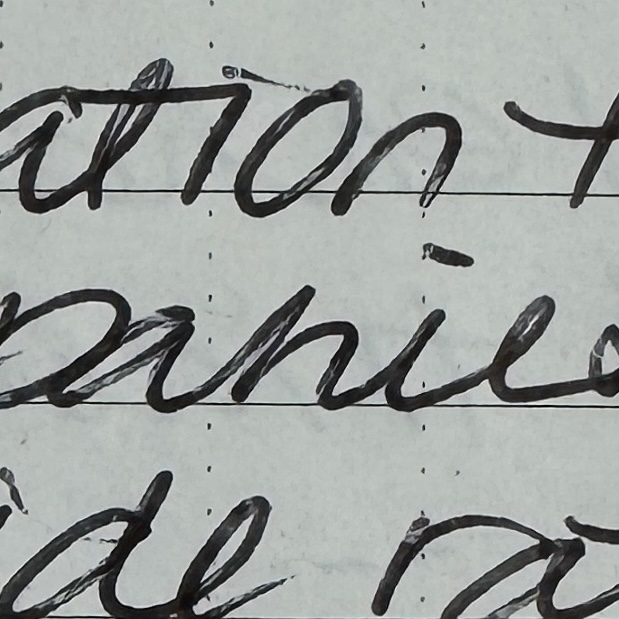 ation t
panie
ide ra